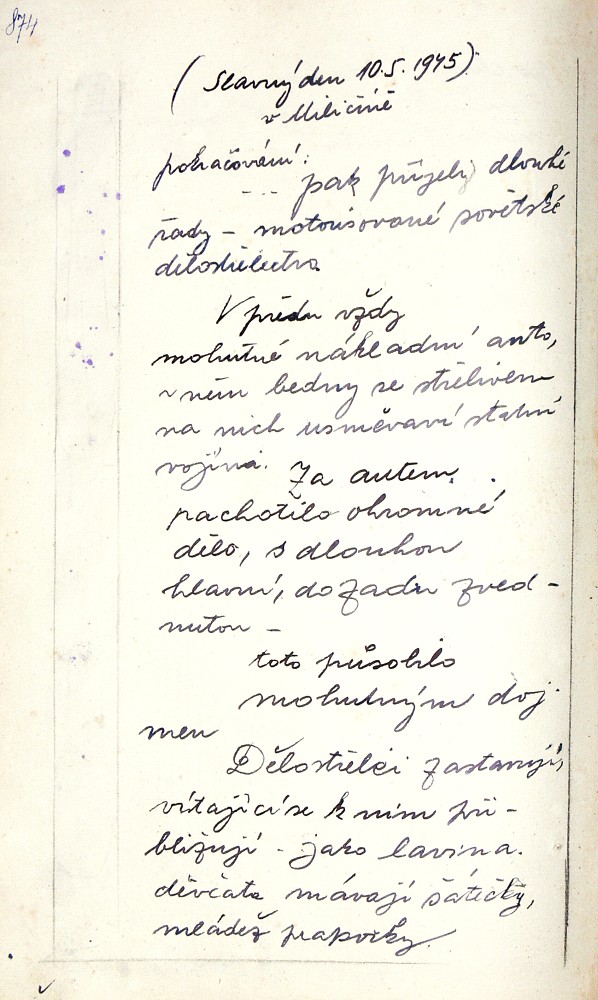 874
(Slavný den 10.5.1945)
v Miličíně
pokračování:
--- pak přijely dlouhé
řady - motorisované sovětské
dělostřelectvo
V předu vždy
mohutné nákladní auto,
v něm bedny se střelivem
na nich usměvaví statní
vojíni. Za autem
pachotilo ohromné
dělo, s dlouhou
hlavní, dozadu zved-
nutou -
toto působilo
mohutným doj-
mem
Dělostřelci zastavují,
vítající se k nim při-
bližují - jako lavina.
děvčata mávají šátečky,
mládež praporky.